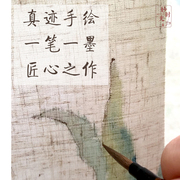 真迹手绘
一笔一墨
匠心之作